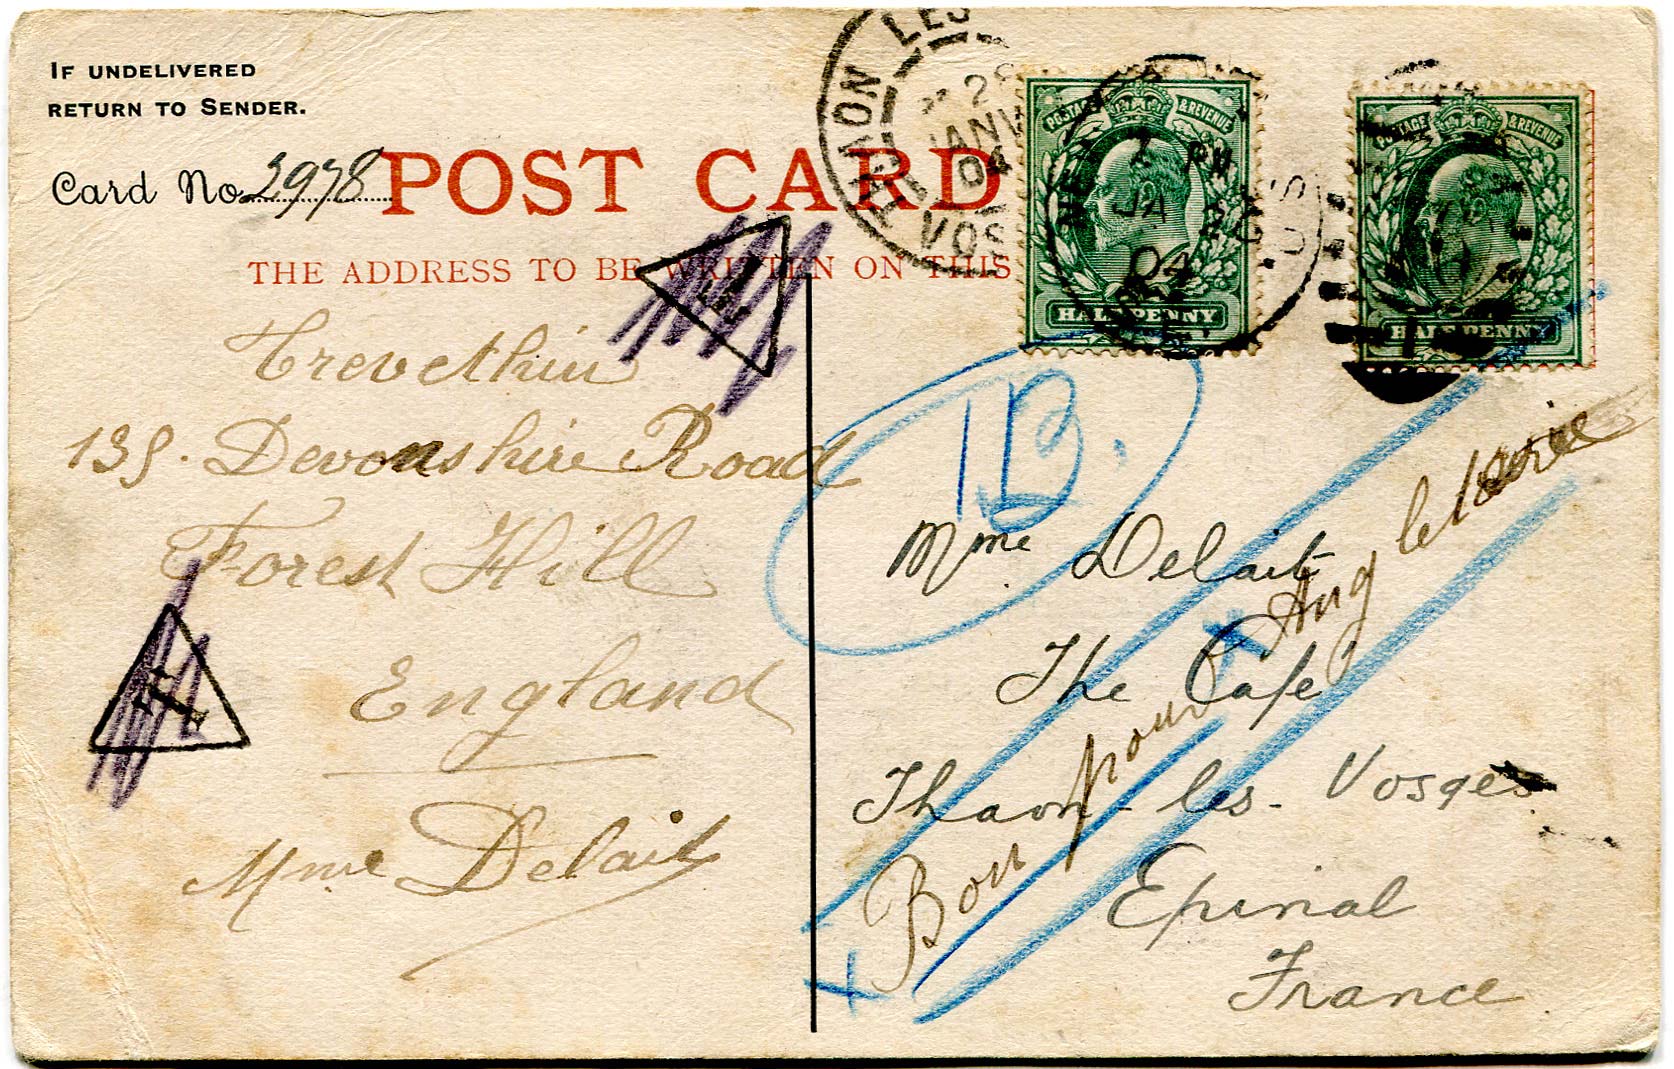 IF UNDELIVERED
RETURN TO SENDER.
Card No. 2978
POST CARD
THE ADDRESS TO BE WRITTEN ON THIS
THAON LES VOS
28
JANV
04
POSTAGE & REVENUE
HALF PENNY
POSTAGE & REVENUE
HALF PENNY
PM
JA
04
T
T
Trevethin
139. Devonshire Road
Forest Hill
England
Mme Delait
Mme Delait
The Cafe
Thaon-les-Vosges
Epinal
France
Bon pour Angleterre